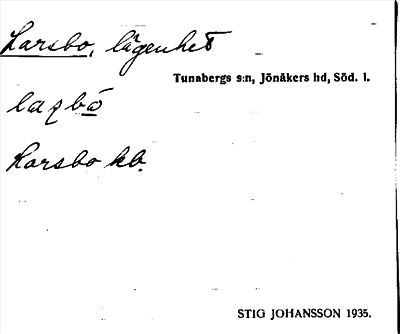 Larsbo, lägenhet
Tunabergs s:n, Jönåkers hd, Söd. l.
Larsbo kb.
STIG JOHANSSON 1935.